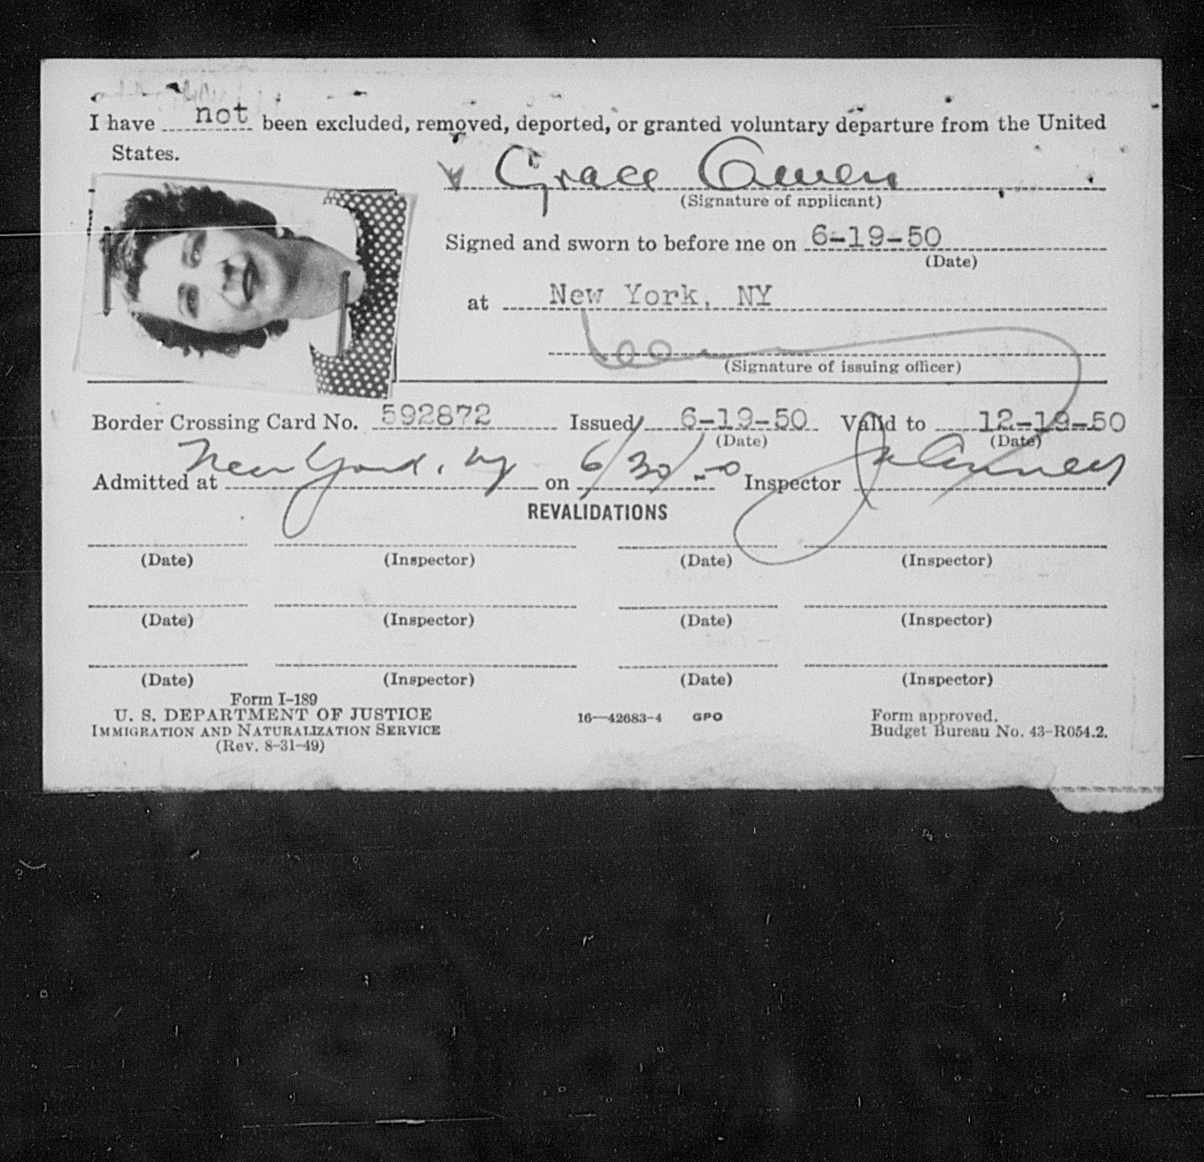 I have not been excluded, removed, deported, or granted voluntary departure from the United
States.
Grace Owen
(Signature of applicant)
Signed and sworn to before me on 6-19-50
(Date)
at New York, NY
(Signature of issuing officer)
Border Crossing Card No. 592872 Issued 6-19-50 Valid to 12-19-50
(Date) (Date)
Admitted at New York, NY on 6/30/50 Inspector
REVALIDATIONS
(Date) (Inspector) (Date) (Inspector)
(Date) (Inspector) (Date) (Inspector)
(Date) (Inspector) (Date) (Inspector)
Form I-189
U. S. DEPARTMENT OF JUSTICE 16—42683-4 GPO Form approved.
IMMIGRATION AND NATURALIZATION SERVICE Budget Bureau No. 43-R054.2.
(Rev. 8-31-49)